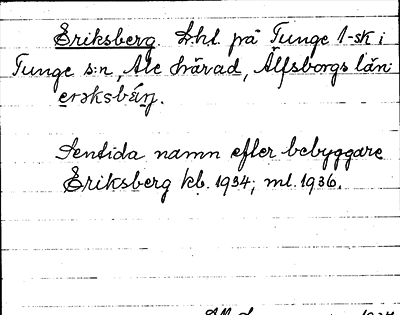 Eriksberg. Lht. på Tunge 1-sk i
Tunge s:n, Ale härad, Älfsborgs län
Sentida namn efter bebyggare
Eriksberg kb. 1934; ml. 1936.